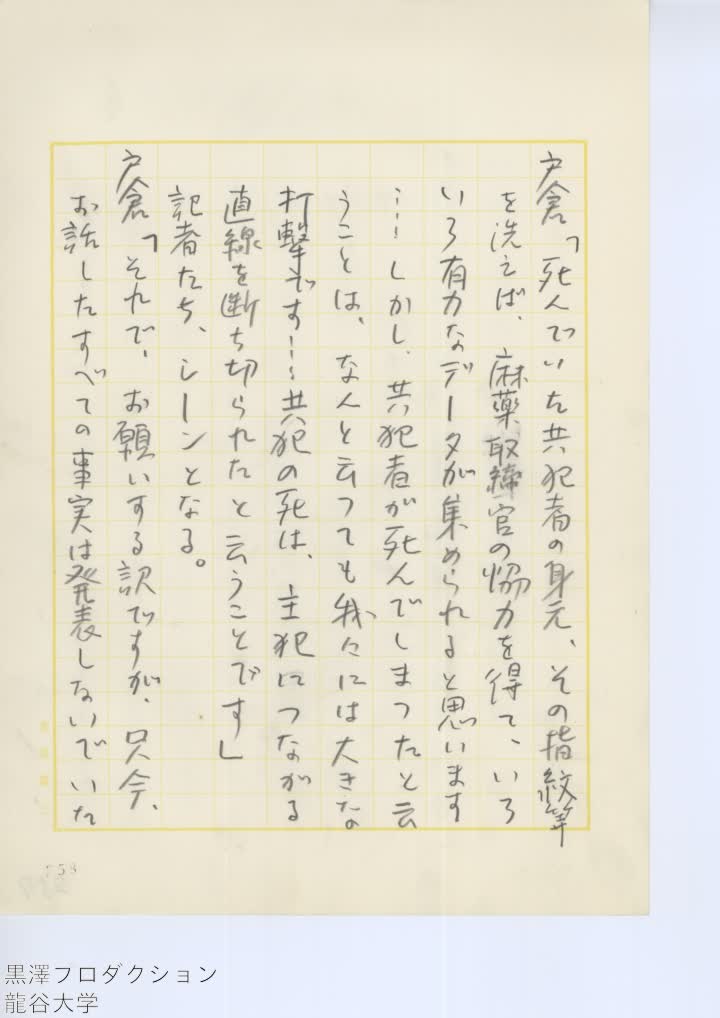 戸倉「死んでいた共犯者の身元、その指紋等
を洗えば、麻薬取締官の協力を得て、いろ
いろ有力なデータが集められると思います
…しかし、共犯者が死んでしまつたと云
うことは、なんと云つても我々には大きな
打撃です…共犯の死は、主犯につながる
直線を断ち切られたと云うことです」
記者たち、シーンとなる。
戸倉「それで、お願いする訳ですが、只今、
お話したすべての事実は発表しないでいた
758
黒澤プロダクション
龍谷大学